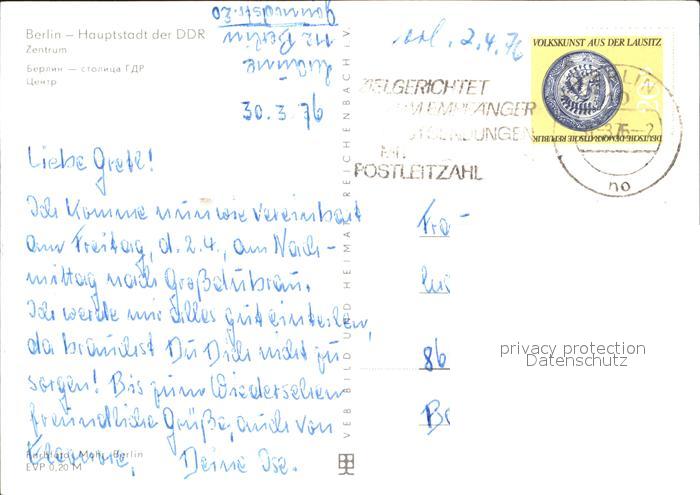 Berlin — Hauptstadt der DDR
Zentrum
Берлин — столица ГДР
Центр
112 Berlin
30.3.76
Liebe Gretl!
Ich komme nun wie vereinbart
am Freitag, d. 2.4., am Nach-
mittag nach Großdubrau.
Ich werde mir alles gut einteilen,
da brauchst Du Dich nicht zu
sorgen! Bis zum Wiedersehen
freundliche Grüße, auch von
Deine Ise.
Farbfoto: Mohr, Berlin
EVP 0,20 M
VEB BILD UND HEIMAT REICHENBACH i. V.
2.4.76
VOLKSKUNST AUS DER LAUSITZ
20
DEUTSCHE DEMOKRATISCHE REPUBLIK
ZIELGERICHTET
EMPFÄNGER
POSTLEITZAHL
BERLIN
no
Fra-
86
privacy protection
Datenschutz